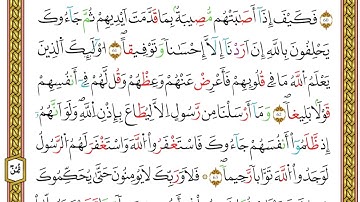 فَكَيْفَ إِذَآ أَصَٰبَتْهُم مُّصِيبَةٌۢ بِمَا قَدَّمَتْ أَيْدِيهِمْ ثُمَّ جَآءُوكَ
يَحْلِفُونَ بِٱللَّهِ إِنْ أَرَدْنَآ إِلَّآ إِحْسَٰنًا وَتَوْفِيقًا أُو۟لَٰٓئِكَ ٱلَّذِينَ
يَعْلَمُ ٱللَّهُ مَا فِى قُلُوبِهِمْ فَأَعْرِضْ عَنْهُمْ وَعِظْهُمْ وَقُل لَّهُمْ فِىٓ أَنفُسِهِمْ
قَوْلًۢا بَلِيغًا وَمَآ أَرْسَلْنَا مِن رَّسُولٍ إِلَّا لِيُطَاعَ بِإِذْنِ ٱللَّهِ وَلَوْ أَنَّهُمْ
إِذ ظَّلَمُوٓا۟ أَنفُسَهُمْ جَآءُوكَ فَٱسْتَغْفَرُوا۟ ٱللَّهَ وَٱسْتَغْفَرَ لَهُمُ ٱلرَّسُولُ
لَوَجَدُوا۟ ٱللَّهَ تَوَّابًا رَّحِيمًا فَلَا وَرَبِّكَ لَا يُؤْمِنُونَ حَتَّىٰ يُحَكِّمُوكَ
ثُمُن